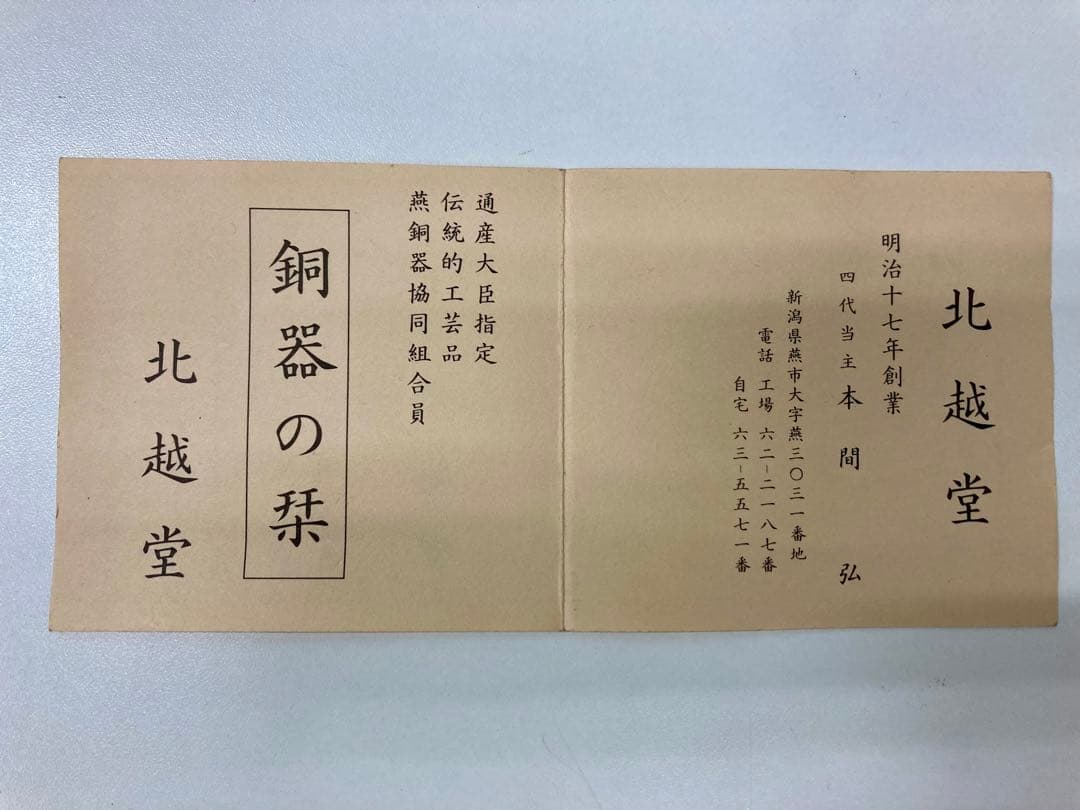 北越堂
明治十七年創業
四代当主 本間 弘
新潟県燕市大字燕三〇三一番地
電話 工場 六二-二一八七番
自宅 六三-五五七一番
通産大臣指定
伝統的工芸品
燕銅器協同組合員
銅器の栞
北越堂